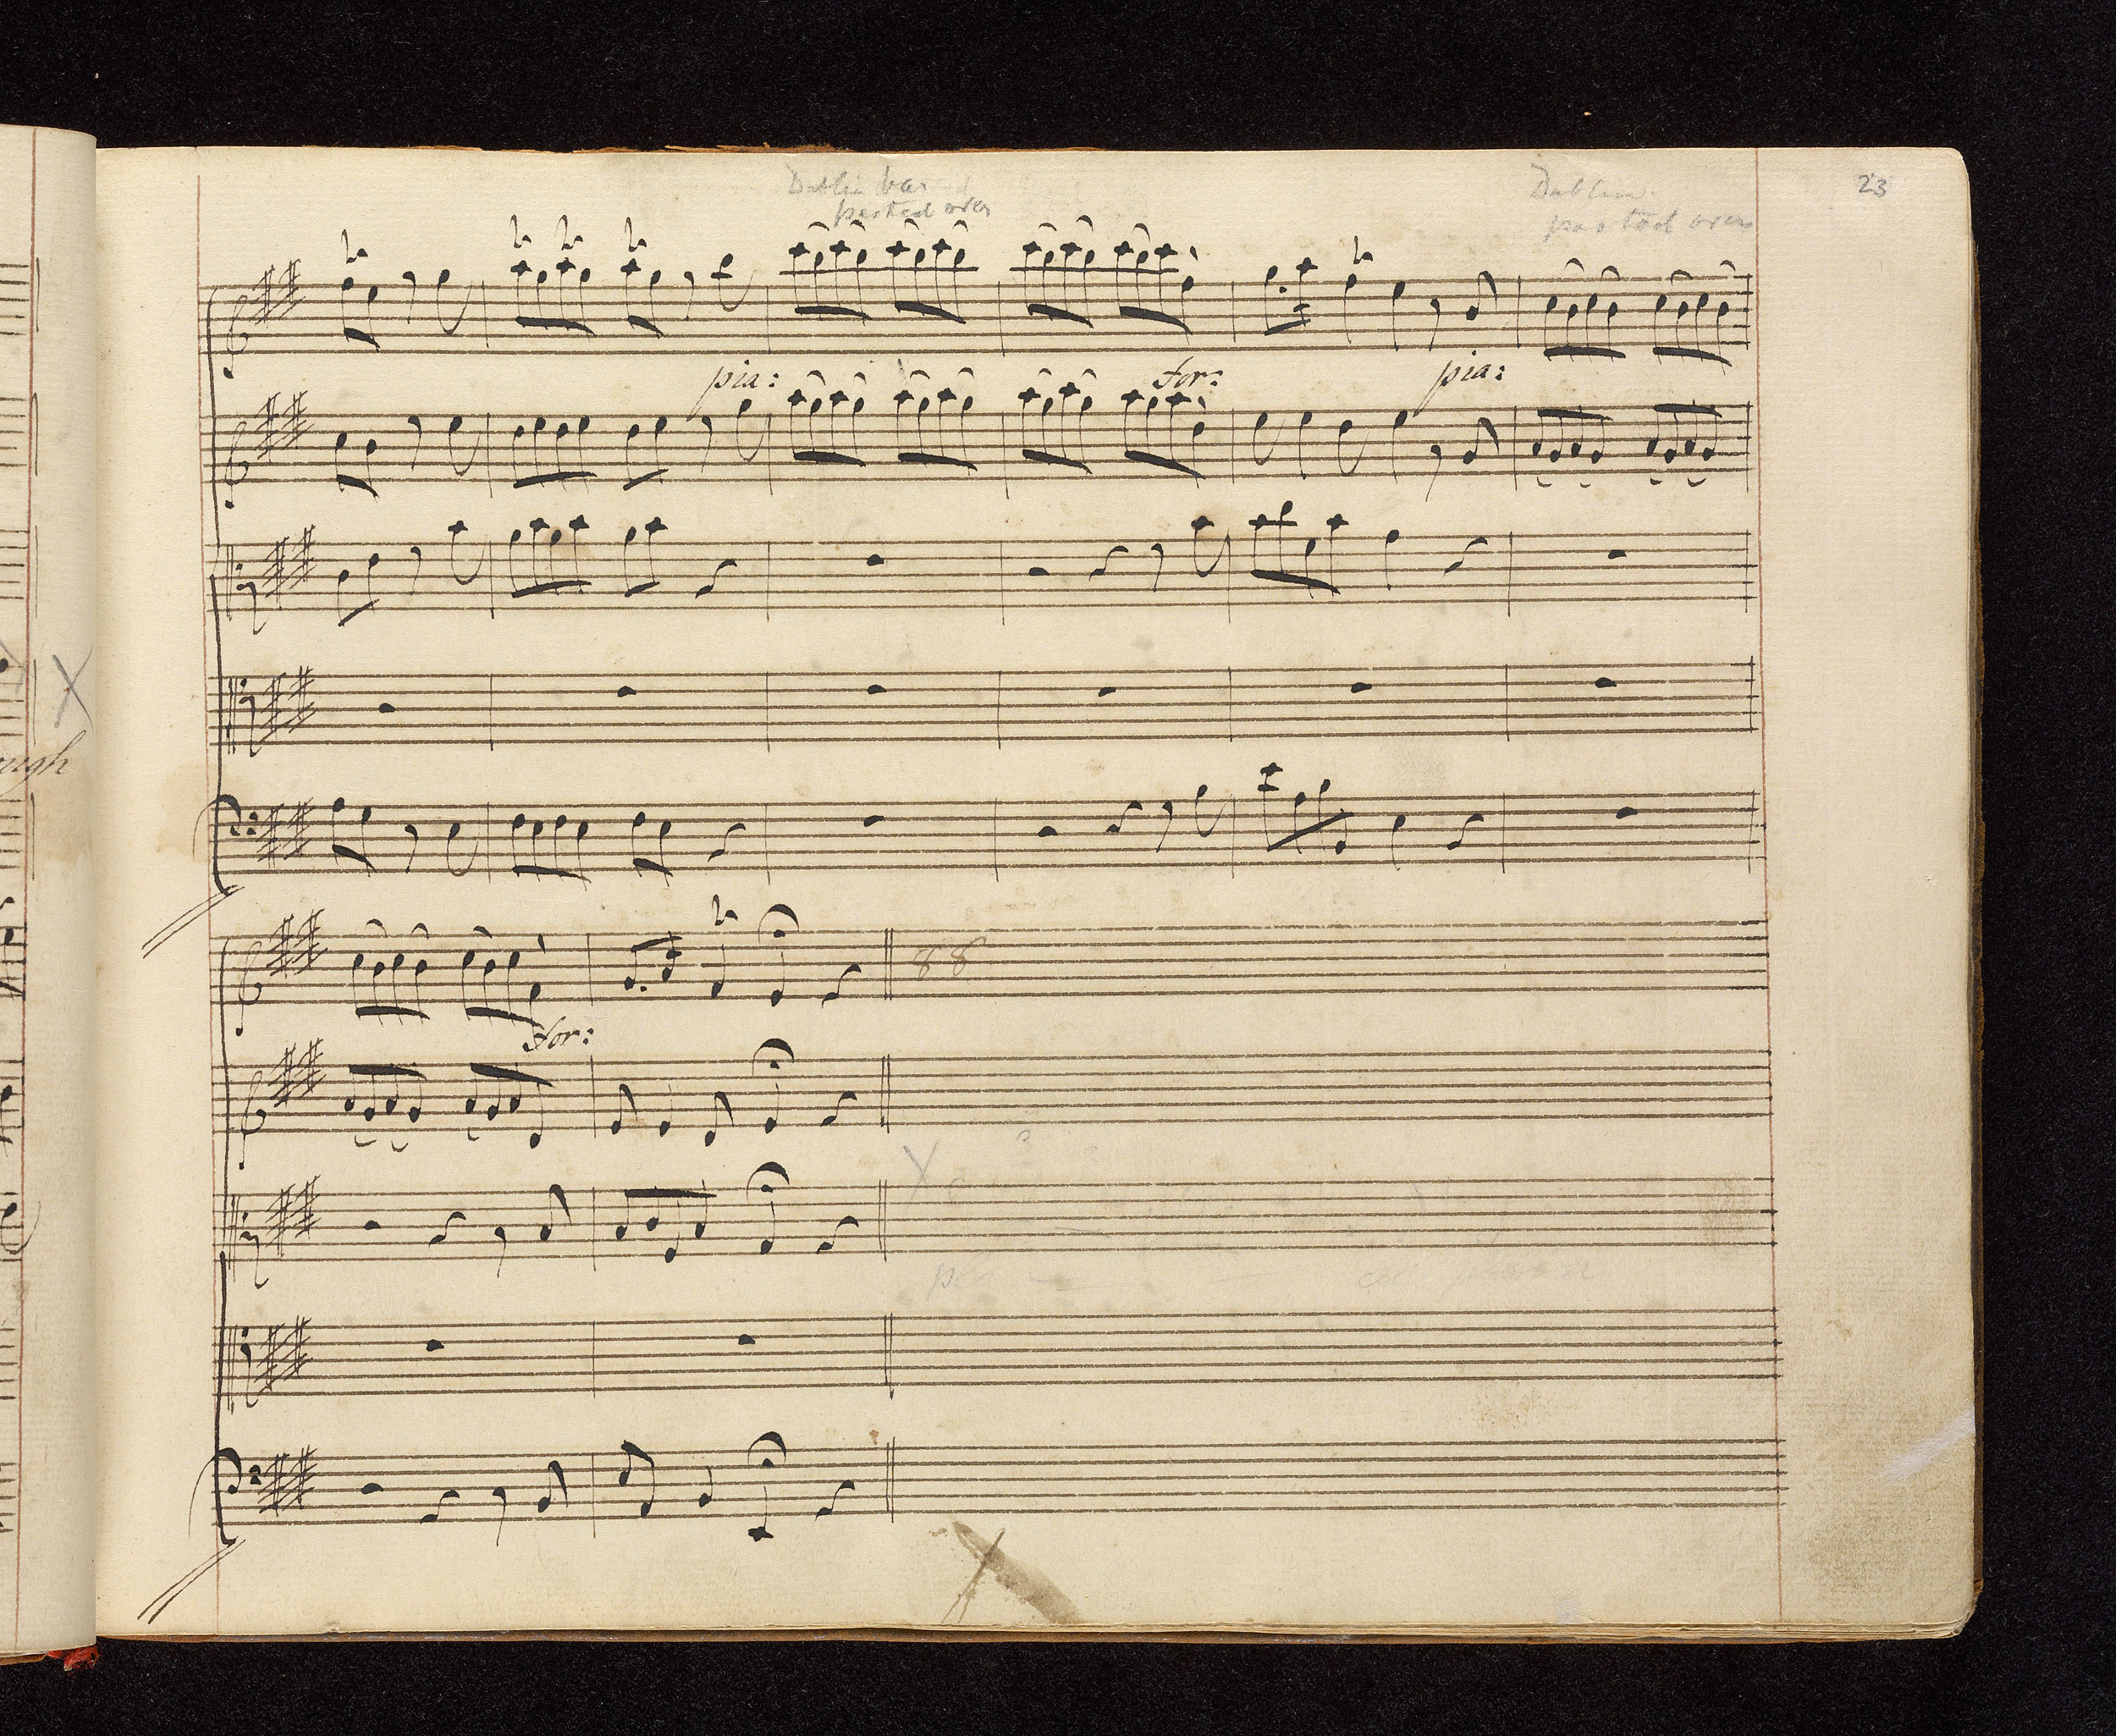 Dublin bar
pasted over
Dublin
pasted over
23
pia:
for:
pia:
for:
88
X
X
X